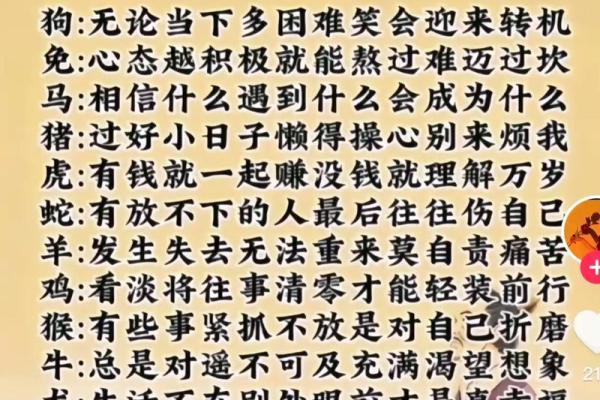 狗:无论当下多困难笑会迎来转机
免:心态越积极就能熬过难迈过坎
马:相信什么遇到什么会成为什么
猪:过好小日子懒得操心别来烦我
虎:有钱就一起赚没钱就理解万岁
蛇:有放不下的人最后往往伤自己
羊:发生失去无法重来莫自责痛苦
鸡:看淡将往事清零才能轻装前行
猴:有些事紧抓不放是对自己折磨
牛:总是对遥不可及充满渴望想象
龙:生活不在别处眼前才是真幸福
21